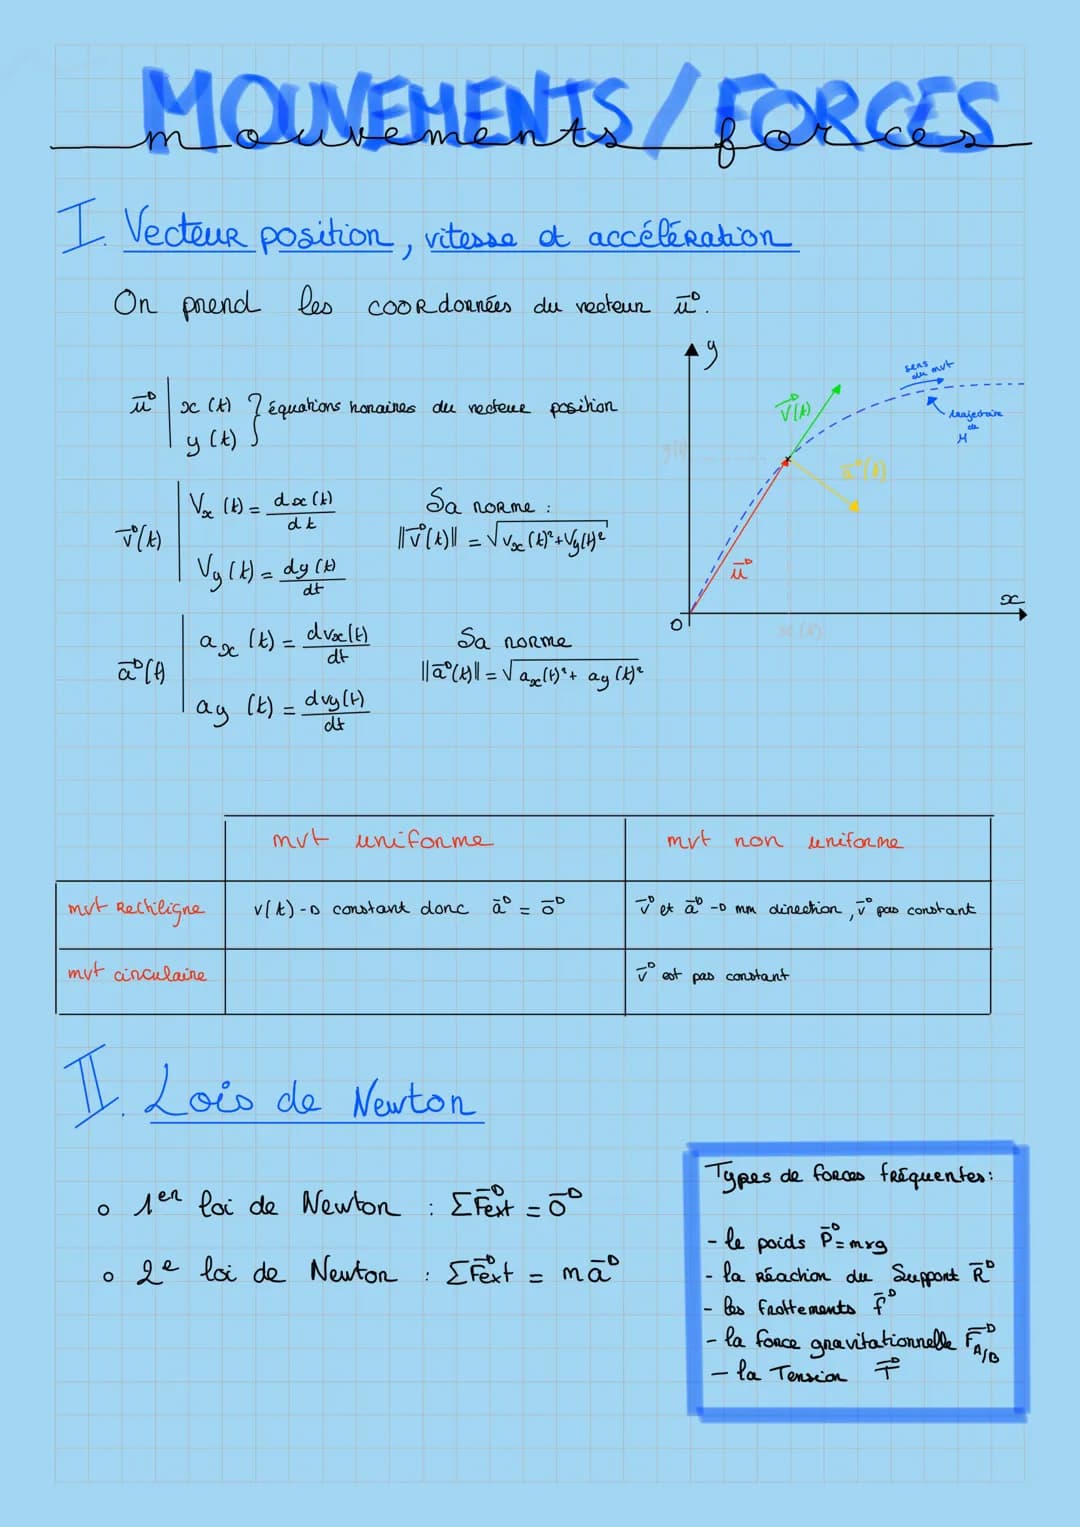 MOUVEMENTS/FORCES
mouvements forces
I. Vecteur position, vitesse et accélération
On prend les coordonnées du vecteur u⃗.
u⃗ | x (t) } équations horaires du vecteur position
y (t)
v⃗(t) | Vx (t) = dx(t)/dt
Vy (t) = dy(t)/dt
Sa norme :
||v⃗(t)|| = √vx(t)²+Vy(t)²
a⃗(t) | ax (t) = dvx(t)/dt
ay (t) = dvy(t)/dt
Sa norme
||a⃗(t)|| = √ax(t)²+ ay(t)²
y
y(t)
v⃗(t)
a⃗(t)
u⃗
sens
du mvt
trajectoire
de
M
O
x(t)
x
mvt uniforme
mvt non uniforme
mvt Rectiligne
v(t) → constant donc a⃗ = 0⃗
v⃗ et a⃗ → mm direction, v⃗ pas constant
mvt circulaire
v⃗ est pas constant
II. Lois de Newton
○ 1er loi de Newton : ΣF⃗ext = 0⃗
○ 2e loi de Newton : ΣF⃗ext = ma⃗
Types de forces fréquentes:
- le poids P⃗=mxg
- la réaction du Support R⃗
- les frottements f⃗
- la force gravitationnelle F⃗A/B
- la Tension T⃗